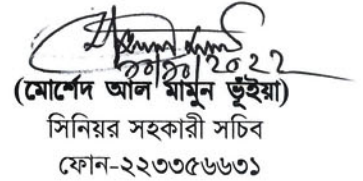 ২০/১০/2022
(মোর্শেদ আল মামুন ভূঁইয়া)
সিনিয়র সহকারী সচিব
ফোন-২২৩৩৫৬৬৩১